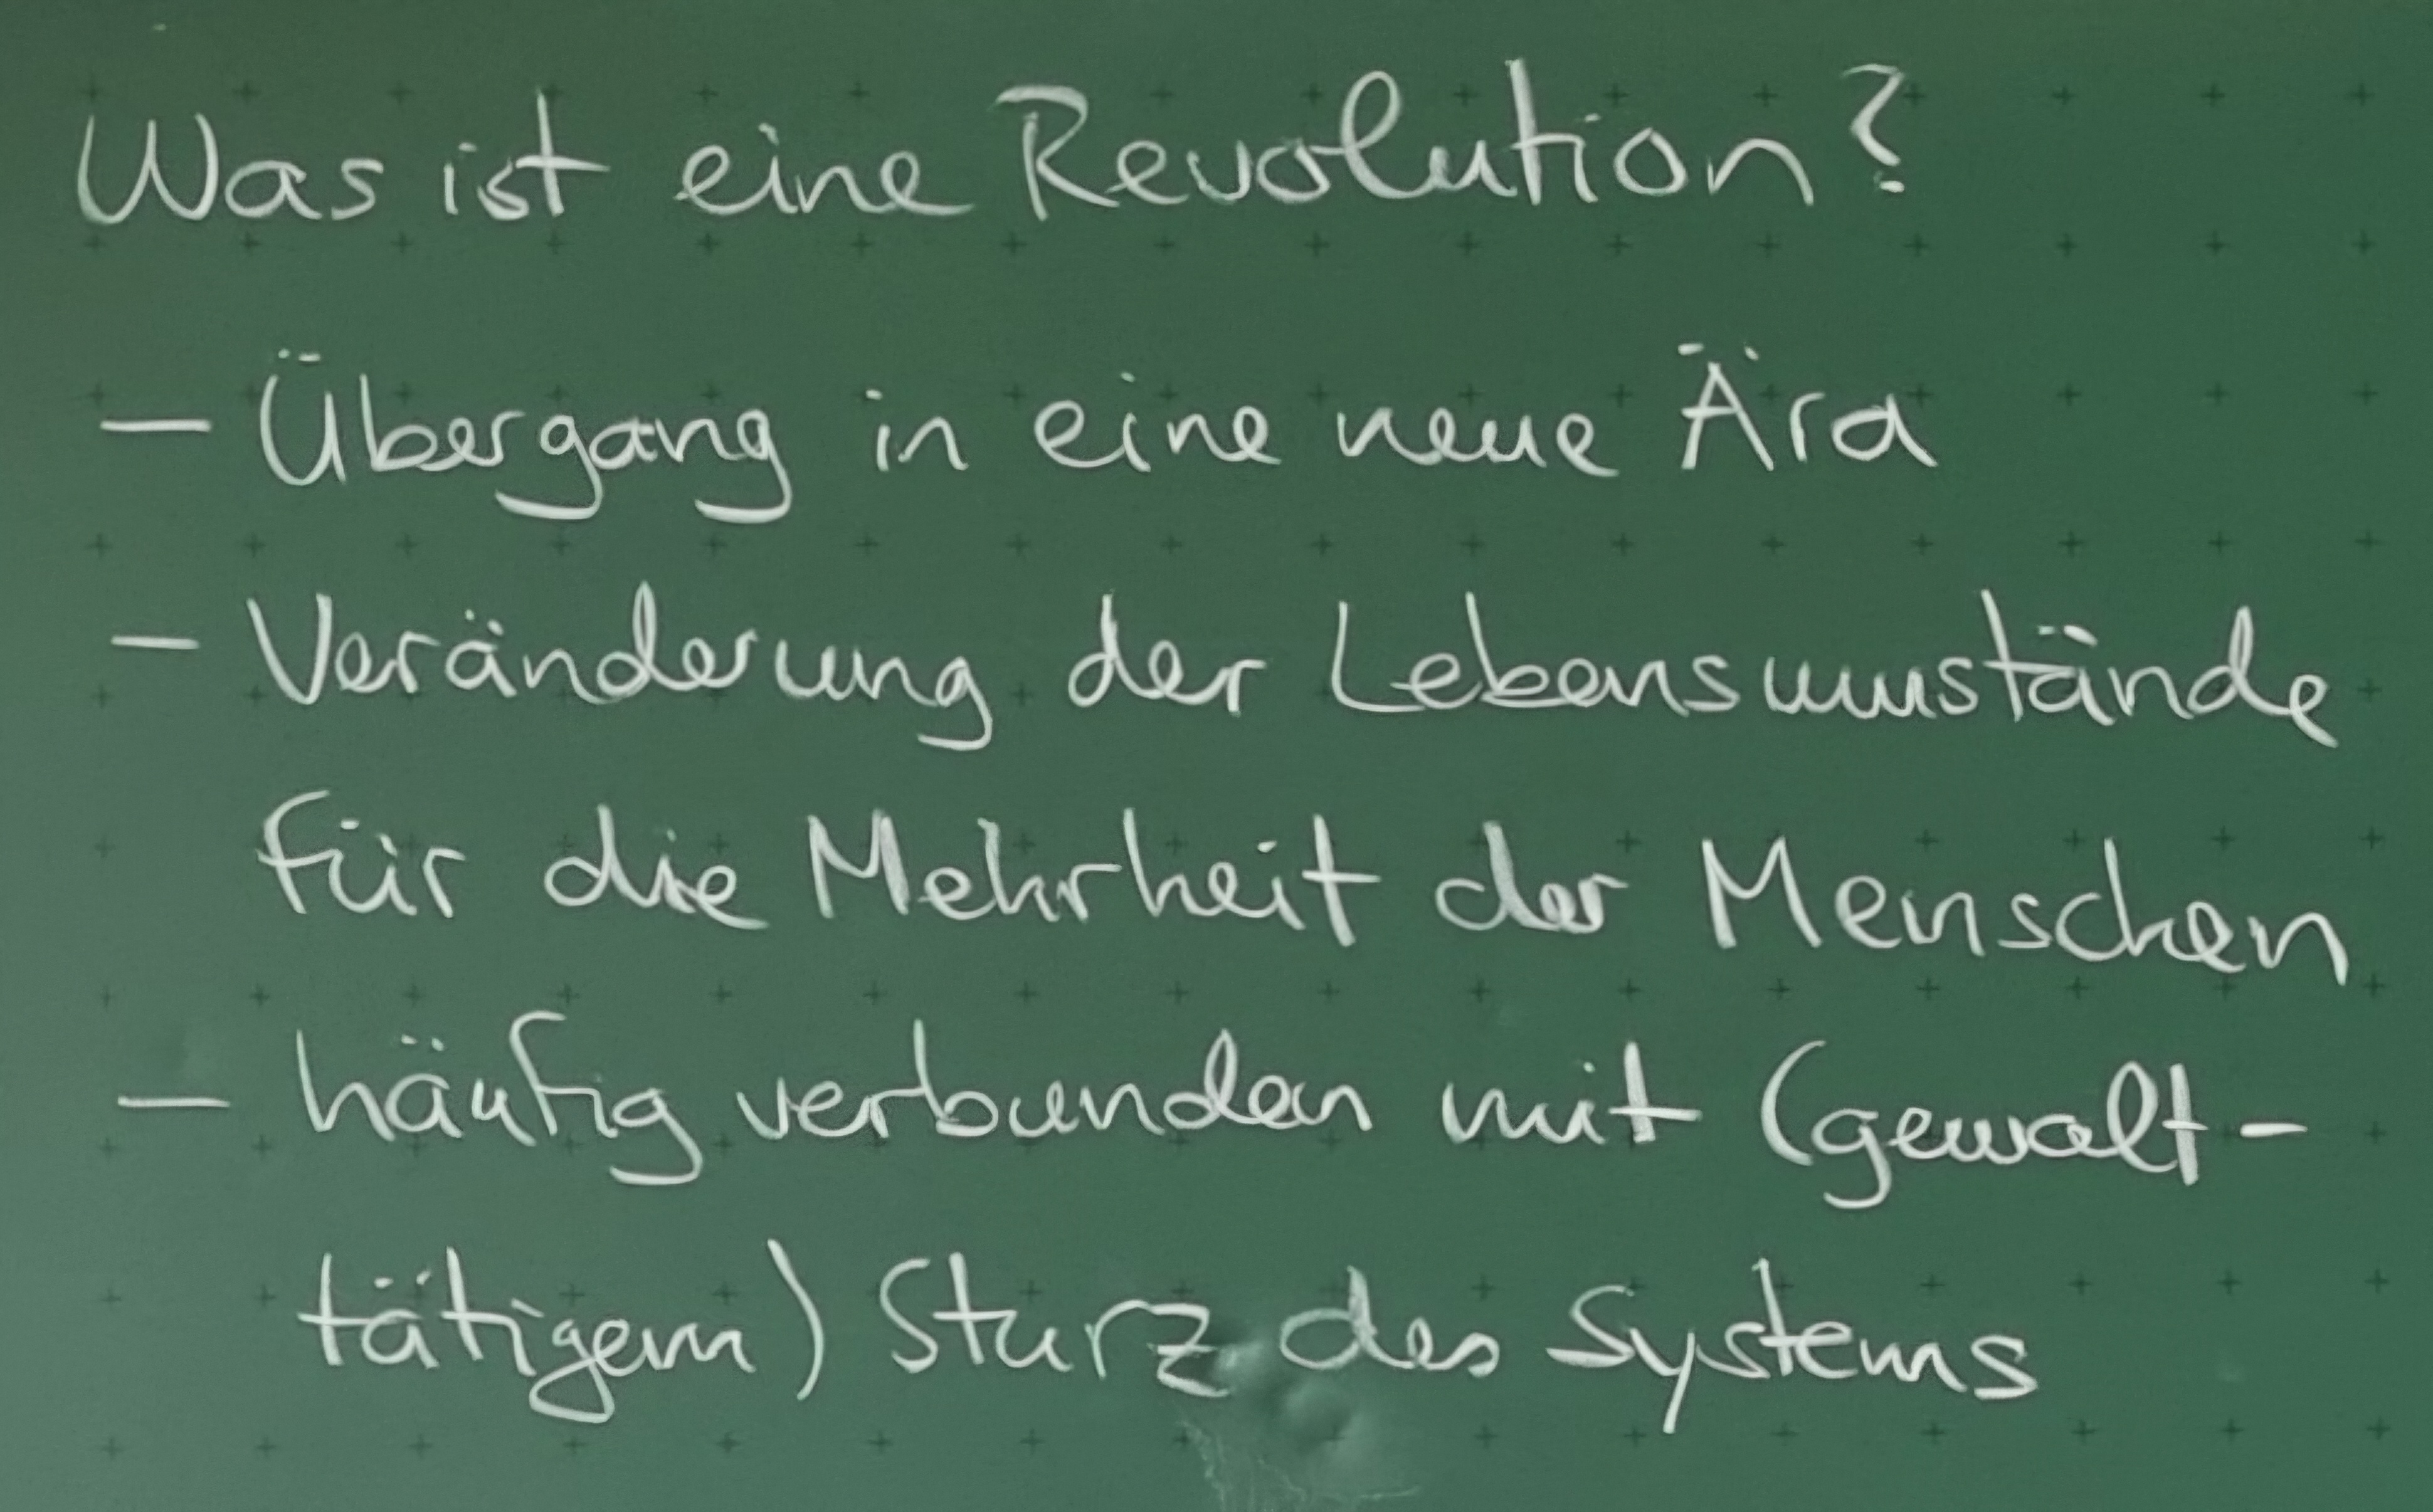 Was ist eine Revolution?
– Übergang in eine neue Ära
– Veränderung der Lebensumstände
für die Mehrheit der Menschen
– häufig verbunden mit (gewalt-
tätigem) Sturz des Systems